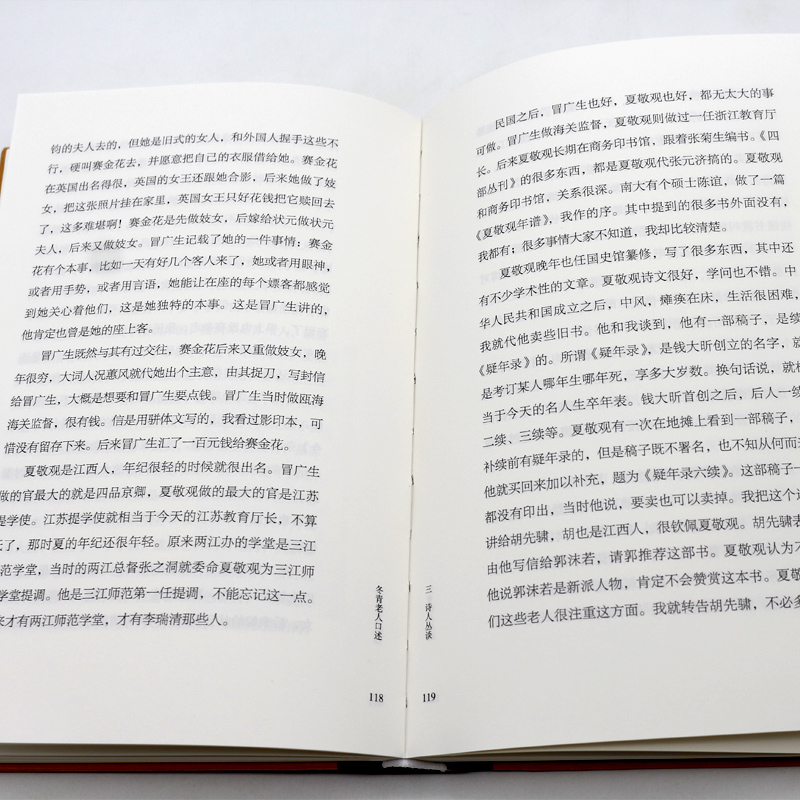 钧的夫人去的，但她是旧式的女人，和外国人握手这些不
行，硬叫赛金花去，并愿意把自己的衣服借给她。赛金花
在英国出名得很，英国的女王还跟她合影，后来她做了妓
女，把这张照片挂在家里，英国女王只好花钱把它赎回去
了，这多难堪啊！赛金花是先做妓女，后嫁给状元做状元
夫人，后来又做妓女。冒广生记载了她的一件事情：赛金
花有个本事，比如一天有好几个客人来了，她或者用眼神，
或者用手势，或者用言语，她能让在座的每个嫖客都感觉
到她关心着他们，这是她独特的本事。这是冒广生讲的，
他肯定也曾是她的座上客。
冒广生既然与其有过交往，赛金花后来又重做妓女，晚
年很穷，大词人况蕙风就代她出个主意，由其捉刀，写封信
给冒广生，大概是想要和冒广生要点钱。冒广生当时做瓯海
海关监督，很有钱。信是用骈体文写的，我看过影印本，可
惜没有留存下来。后来冒广生汇了一百元钱给赛金花。
夏敬观是江西人，年纪很轻的时候就很出名。冒广生
做的官最大的就是四品京卿，夏敬观做的最大的官是江苏
提学使。江苏提学使就相当于今天的江苏教育厅长，不算
了，那时夏的年纪还很年轻。原来两江办的学堂是三江
范学堂，当时的两江总督张之洞就委命夏敬观为三江师
学堂提调。他是三江师范第一任提调，不能忘记这一点。
来才有两江师范学堂，才有李瑞清那些人。
冬青老人口述
118
民国之后，冒广生也好，夏敬观也好，都无太大的事
可做。冒广生做海关监督，夏敬观则做过一任浙江教育厅
长。后来夏敬观长期在商务印书馆，跟着张菊生编书。《四
部丛刊》的很多东西，都是夏敬观代张元济搞的。夏敬观
和商务印书馆，关系很深。南大有个硕士陈谊，做了一篇
《夏敬观年谱》，我作的序。其中提到的很多书外面没有，
我都有；很多事情大家不知道，我却比较清楚。
夏敬观晚年也任国史馆纂修，写了很多东西，其中还
有不少学术性的文章。夏敬观诗文很好，学问也不错。中
华人民共和国成立之后，中风，瘫痪在床，生活很困难，
我就代他卖些旧书。他和我谈到，他有一部稿子，是续
《疑年录》的。所谓《疑年录》，是钱大昕创立的名字，就
是考订某人哪年生哪年死，享多大岁数。换句话说，就
当于今天的名人生卒年表。钱大昕首创之后，后人一续
二续、三续等。夏敬观有一次在地摊上看到一部稿子，
补续前有疑年录的，但是稿子既不署名，也不知从何而
他就买回来加以补充，题为《疑年录六续》。这部稿子一
都没有印出，当时他说，要卖也可以卖掉。我把这个
讲给胡先骕，胡也是江西人，很钦佩夏敬观。胡先骕
由他写信给郭沫若，请郭推荐这部书。夏敬观认为不
他说郭沫若是新派人物，肯定不会赞赏这本书。夏敬
们这些老人很注重这方面。我就转告胡先骕，不必多
三 诗人丛谈
119